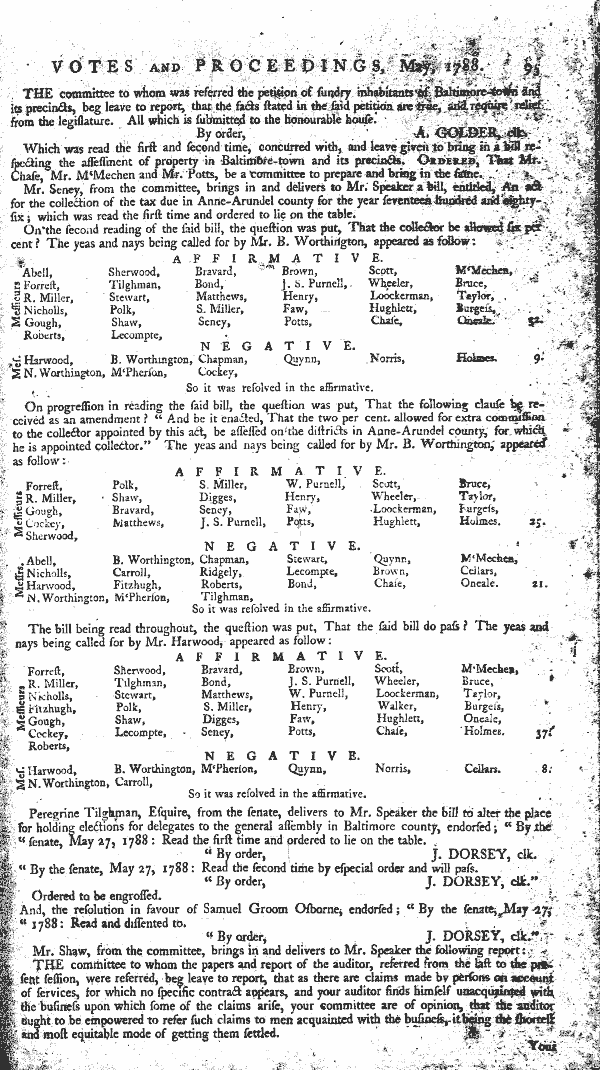 VOTES AND PROCEEDINGS, May, 1788. 95
THE committee to whom was referred the petition of ſundry inhabitants of Baltimore-town and
its precincts, beg leave to report, that the facts ſtated in the ſaid petition are true, and require relief
from the legiſlature. All which is ſubmitted to the honourable houſe.
By order, A. GOLDER, clk.
Which was read the firſt and ſecond time, concurred with, and leave given to bring in a bill re-
ſpecting the aſſeſſment of property in Baltimore-town and its precincts. ORDERED, That Mr.
Chaſe, Mr. M‘Mechen and Mr. Potts, be a committee to prepare and bring in the ſame.
Mr. Seney, from the committee, brings in and delivers to Mr. Speaker a bill, entitled, An act
for the collection of the tax due in Anne-Arundel county for the year ſeventeen hundred and eighty-
ſix; which was read the firſt time and ordered to lie on the table.
On the ſecond reading of the ſaid bill, the queſtion was put, That the collector be allowed ſix per
cent? The yeas and nays being called for by Mr. B. Worthington, appeared as follow:
AFFIRMATIVE.
Meſſieurs
Abell, Sherwood, Bravard, Brown, Scott, M‘Mechen,
Forreſt, Tilghman, Bond, J. S. Purnell, Wheeler, Bruce,
R. Miller, Stewart, Matthews, Henry, Loockerman, Taylor,
Nicholls, Polk, S. Miller, Faw, Hughlett, Burgeſs,
Gough, Shaw, Seney, Potts, Chaſe, Oneale. 32.
Roberts, Lecompte,
NEGATIVE.
Meſ.
Harwood, B. Worthington, Chapman, Quynn, Norris, Holmes. 9.
N. Worthington, M‘Pherſon, Cockey,
So it was reſolved in the affirmative.
On progreſſion in reading the ſaid bill, the queſtion was put, That the following clauſe be re-
ceived as an amendment? “ And be it enacted, That the two per cent. allowed for extra commiſſion
to the collector appointed by this act, be aſſeſſed on the diſtricts in Anne-Arundel county, for which
he is appointed collector.” The yeas and nays being called for by Mr. B. Worthington, appeared
as follow:
AFFIRMATIVE.
Meſſieurs
Forreſt, Polk, S. Miller, W. Purnell, Scott, Bruce,
R. Miller, Shaw, Digges, Henry, Wheeler, Taylor,
Gough, Bravard, Seney, Faw, Loockerman, Burgeſs,
Cockey, Matthews, J. S. Purnell, Potts, Hughlett, Holmes. 25.
Sherwood,
NEGATIVE.
Meſſrs.
Abell, B. Worthington, Chapman, Stewart, Quynn, M‘Mechen,
Nicholls, Carroll, Ridgely, Lecompte, Brown, Cellars,
Harwood, Fitzhugh, Roberts, Bond, Chaſe, Oneale. 21.
N. Worthington, M‘Pherſon, Tilghman,
So it was reſolved in the affirmative.
The bill being read throughout, the queſtion was put, That the ſaid bill do paſs? The yeas and
nays being called for by Mr. Harwood, appeared as follow:
AFFIRMATIVE.
Meſſieurs
Forreſt, Sherwood, Bravard, Brown, Scott, M‘Mechen,
R. Miller, Tilghman, Bond, J. S. Purnell, Wheeler, Bruce,
Nicholls, Stewart, Matthews, W. Purnell, Loockerman, Taylor,
Fitzhugh, Polk, S. Miller, Henry, Walker, Burgeſs,
Gough, Shaw, Digges, Faw, Hughlett, Oneale,
Cockey, Lecompte, Seney, Potts, Chaſe, Holmes. 37.
Roberts,
NEGATIVE.
Meſ.
Harwood, B. Worthington, M‘Pherſon, Quynn, Norris, Cellars. 8.
N. Worthington, Carroll,
So it was reſolved in the affirmative.
Peregrine Tilghman, Eſquire, from the ſenate, delivers to Mr. Speaker the bill to alter the place
for holding elections for delegates to the general aſſembly in Baltimore county, endorſed; “ By the
“ ſenate, May 27, 1788: Read the firſt time and ordered to lie on the table.
“ By order, J. DORSEY, clk.
“ By the ſenate, May 27, 1788: Read the ſecond time by eſpecial order and will paſs.
“ By order, J. DORSEY, clk.”
Ordered to be engroſſed.
And, the reſolution in favour of Samuel Groom Oſborne, endorſed; “ By the ſenate, May 27,
“ 1788: Read and diſſented to.
“ By order, J. DORSEY, clk.”
Mr. Shaw, from the committee, brings in and delivers to Mr. Speaker the following report:
THE committee to whom the papers and report of the auditor, referred from the laſt to the pre-
ſent ſeſſion, were referred, beg leave to report, that as there are claims made by perſons on account
of ſervices, for which no ſpecific contract appears, and your auditor finds himſelf unacquainted with
the buſineſs upon which ſome of the claims ariſe, your committee are of opinion, that the auditor
ought to be empowered to refer ſuch claims to men acquainted with the buſineſs, it being the ſhorteſt
and moſt equitable mode of getting them ſettled.
Your